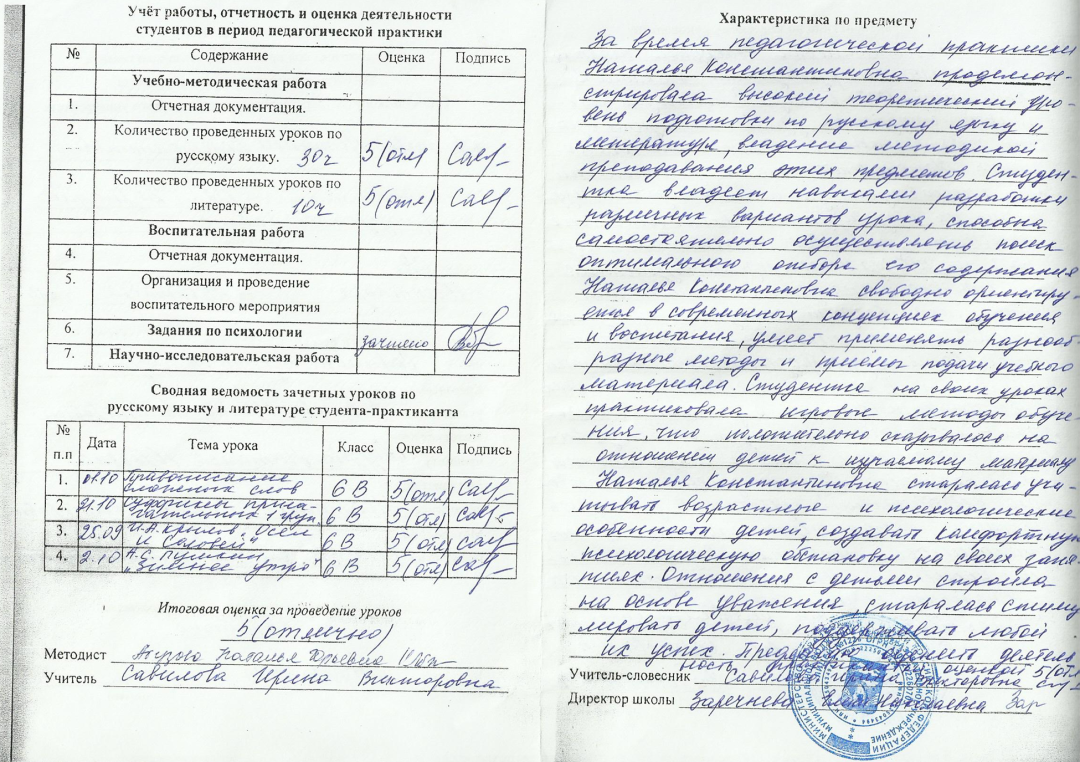 Учёт работы, отчетность и оценка деятельности
студентов в период педагогической практики
№ Содержание Оценка Подпись
Учебно-методическая работа
1. Отчетная документация.
2. Количество проведенных уроков по
русскому языку. 30ч 5(отл)
3. Количество проведенных уроков по
литературе. 10ч 5(отл)
Воспитательная работа
4. Отчетная документация.
5. Организация и проведение
воспитательного мероприятия
6. Задания по психологии зачтено
7. Научно-исследовательская работа
Сводная ведомость зачетных уроков по
русскому языку и литературе студента-практиканта
№
п.п Дата Тема урока Класс Оценка Подпись
1. 01.10 Правописание
сложных слов 6 В 5(отл)
2. 21.10 Суффиксы прила-
гательных 6 В 5(отл)
3. 25.09 И.А. Крылов. Осел
и Соловей 6 В 5(отл)
4. 2.10 А.С. Пушкин
"Зимнее утро" 6 В 5(отл)
Итоговая оценка за проведение уроков
5(отлично)
Методист Наталья Юрьевна
Учитель Савилова Ирина Викторовна
Характеристика по предмету
За время педагогической практики
Наталья Константиновна продемон-
стрировала высокий теоретический уро-
вень подготовки по русскому языку и
литературе, владение методикой
преподавания этих предметов. Студен-
тка владеет навыками разработки
различных вариантов урока, способна
самостоятельно осуществлять поиск
оптимального отбора его содержания
Наталья Константиновна свободно ориентиру-
ется в современных концепциях обучения
и воспитания, умеет применять разнооб-
разные методы и приёмы подачи учебного
материала. Студентка на своих уроках
практиковала игровые методы обуче-
ния, что положительно сказывалось на
отношении детей к изучаемому материалу
Наталья Константиновна старалась учи-
тывать возрастные и психологические
особенности детей, создавать комфортную
психологическую обстановку на своих заня-
тиях. Отношения с детьми строила
на основе уважения, старалась стиму
лировать детей, поддерживать любой
их успех. оценить деятель
ность оценкой 5(отл
Учитель-словесник Савилова Ирина Викторовна
Директор школы Николаевна